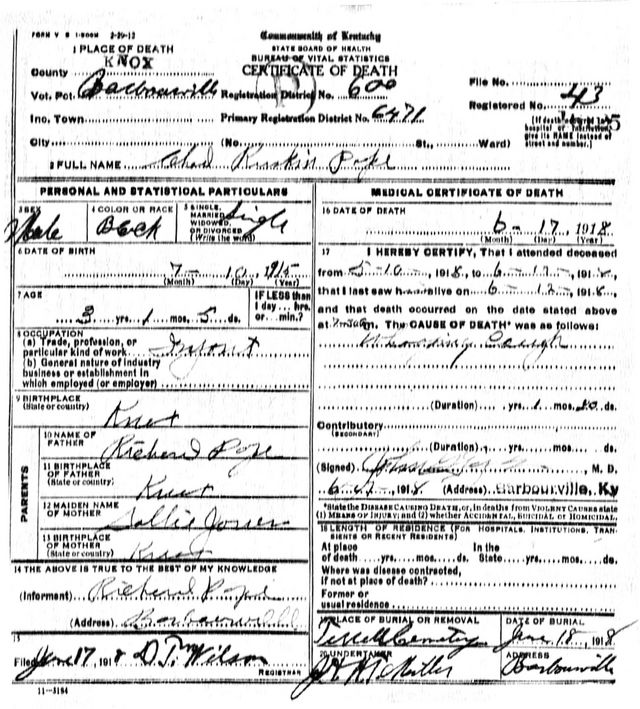 FORM V S 1-500M 2-29-12
Commonwealth of Kentucky
STATE BOARD OF HEALTH
BUREAU OF VITAL STATISTICS
CERTIFICATE OF DEATH
1 PLACE OF DEATH
County KNOX
Vot. Pct. Barbourville Registration District No. 600
File No.
Inc. Town Primary Registration District No. 6471
Registered No. 43
City (No. St., Ward)
(If death occurred in a hospital or institution give its NAME instead of street and number.)
2 FULL NAME Chad Ruskin Pope
PERSONAL AND STATISTICAL PARTICULARS
3 SEX Male
4 COLOR OR RACE Black
5 SINGLE, MARRIED WIDOWED, OR DIVORCED (Write the word) Single
6 DATE OF BIRTH
7-10, 1915
(Month) (Day) (Year)
7 AGE
3 yrs. 1 mos. 5 ds.
IF LESS than 1 day... hrs. or ... min.?
8 OCCUPATION
(a) Trade, profession, or
particular kind of work Infant
(b) General nature of industry
business or establishment in
which employed (or employer)
9 BIRTHPLACE
(State or country) Knox
PARENTS
10 NAME OF FATHER Richard Pope
11 BIRTHPLACE OF FATHER
(State or country) Knox
12 MAIDEN NAME OF MOTHER Sallie Jones
13 BIRTHPLACE OF MOTHER
(State or country) Knox
14 THE ABOVE IS TRUE TO THE BEST OF MY KNOWLEDGE
(Informant) Richard Pope
(Address) Barbourville
15
Filed June 17, 1918 D. Tm Wilson
REGISTRAR
11-3184
MEDICAL CERTIFICATE OF DEATH
16 DATE OF DEATH
6-17, 1918
(Month) (Day) (Year)
17 I HEREBY CERTIFY, That I attended deceased
from 5-10-, 1918, to 6-17-, 1918,
that I last saw h alive on 6-12-, 1918,
and that death occurred on the date stated above
at m. The CAUSE OF DEATH* was as follows:
Whooping Cough
(Duration) yrs. 1 mos. 10 ds.
Contributory
(SECONDARY)
(Duration) yrs. mos. ds.
(Signed) , M. D.
1918 (Address) Barbourville, Ky
*State the DISEASE CAUSING DEATH, or, in deaths from VIOLENT CAUSES state
(1) MEANS OF INJURY; and (2) whether ACCIDENTAL, SUICIDAL or HOMICIDAL.
18 LENGTH OF RESIDENCE (FOR HOSPITALS, INSTITUTIONS, TRANSIENTS OR RECENT RESIDENTS)
At place of death yrs. mos. ds. In the State yrs. mos. ds.
Where was disease contracted,
if not at place of death?
Former or
usual residence
19 PLACE OF BURIAL OR REMOVAL
Terrell Cemetery
DATE OF BURIAL
June 18, 1918
20 UNDERTAKER
ADDRESS
Barbourville